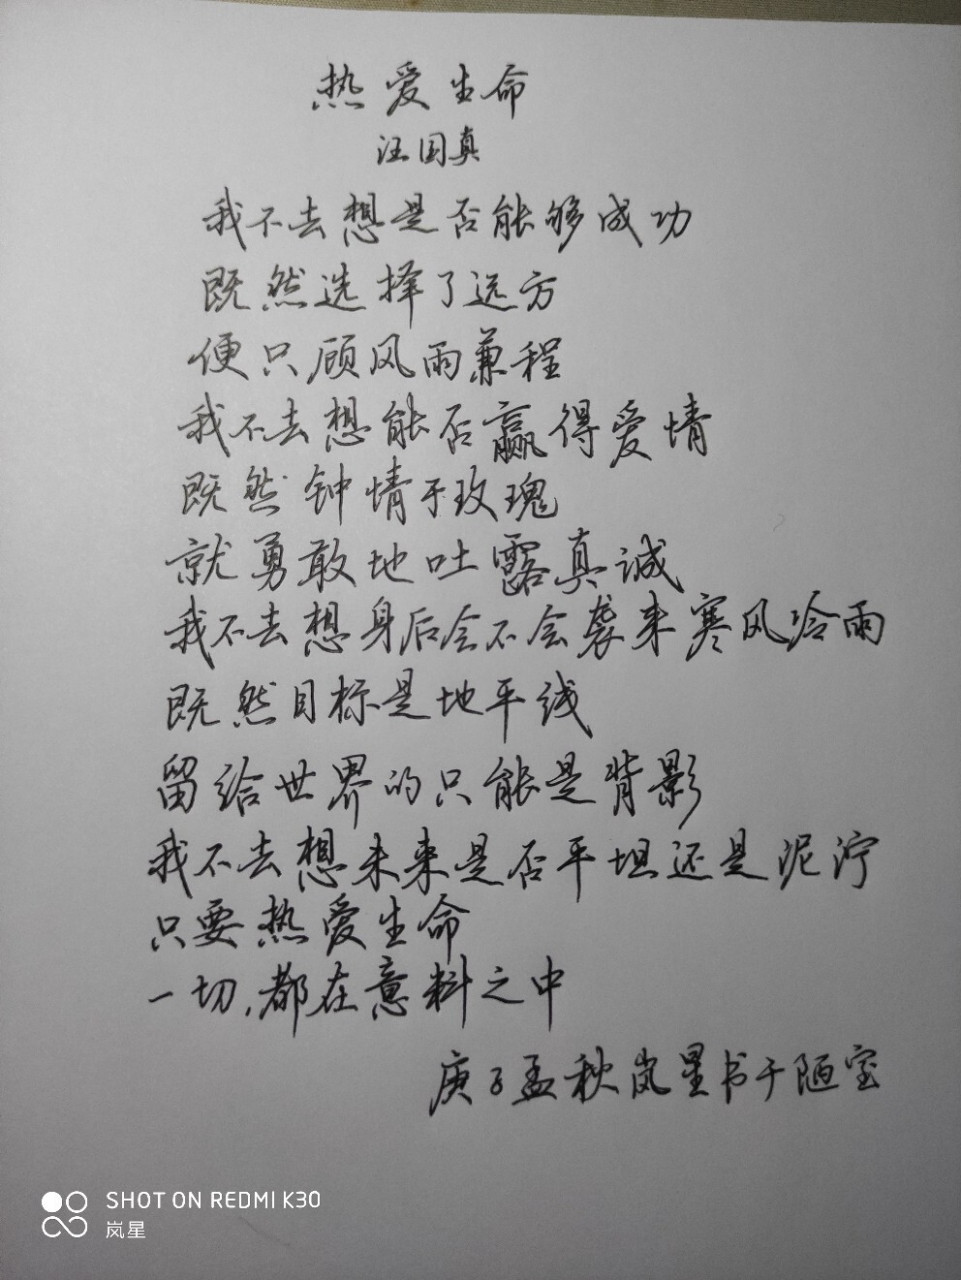 热爱生命
汪国真
我不去想是否能够成功
既然选择了远方
便只顾风雨兼程
我不去想能否赢得爱情
既然钟情于玫瑰
就勇敢地吐露真诚
我不去想身后会不会袭来寒风冷雨
既然目标是地平线
留给世界的只能是背影
我不去想未来是否平坦还是泥泞
只要热爱生命
一切,都在意料之中
庚子孟秋岚星书于陋室
SHOT ON REDMI K30
岚星